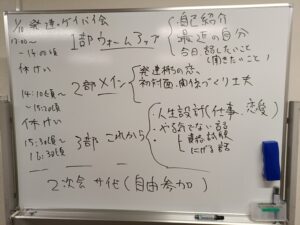 1/10 発達・ゲイバイ会
13:00〜
〜14:00頃
1部 ウォームアップ
・自己紹介
・最近の自分
・今日、話したいこと
(聞きたいこと)
休けい
14:10頃〜
〜15:20頃
2部 メイン
・発達持ちの恋、
初対面・関係づくり工夫
休けい
15:30頃〜
16:30頃
3部 これから
・人生設計(仕事、恋愛)
・やる気でない話
にげる話
2次会 サ代(自由参加)